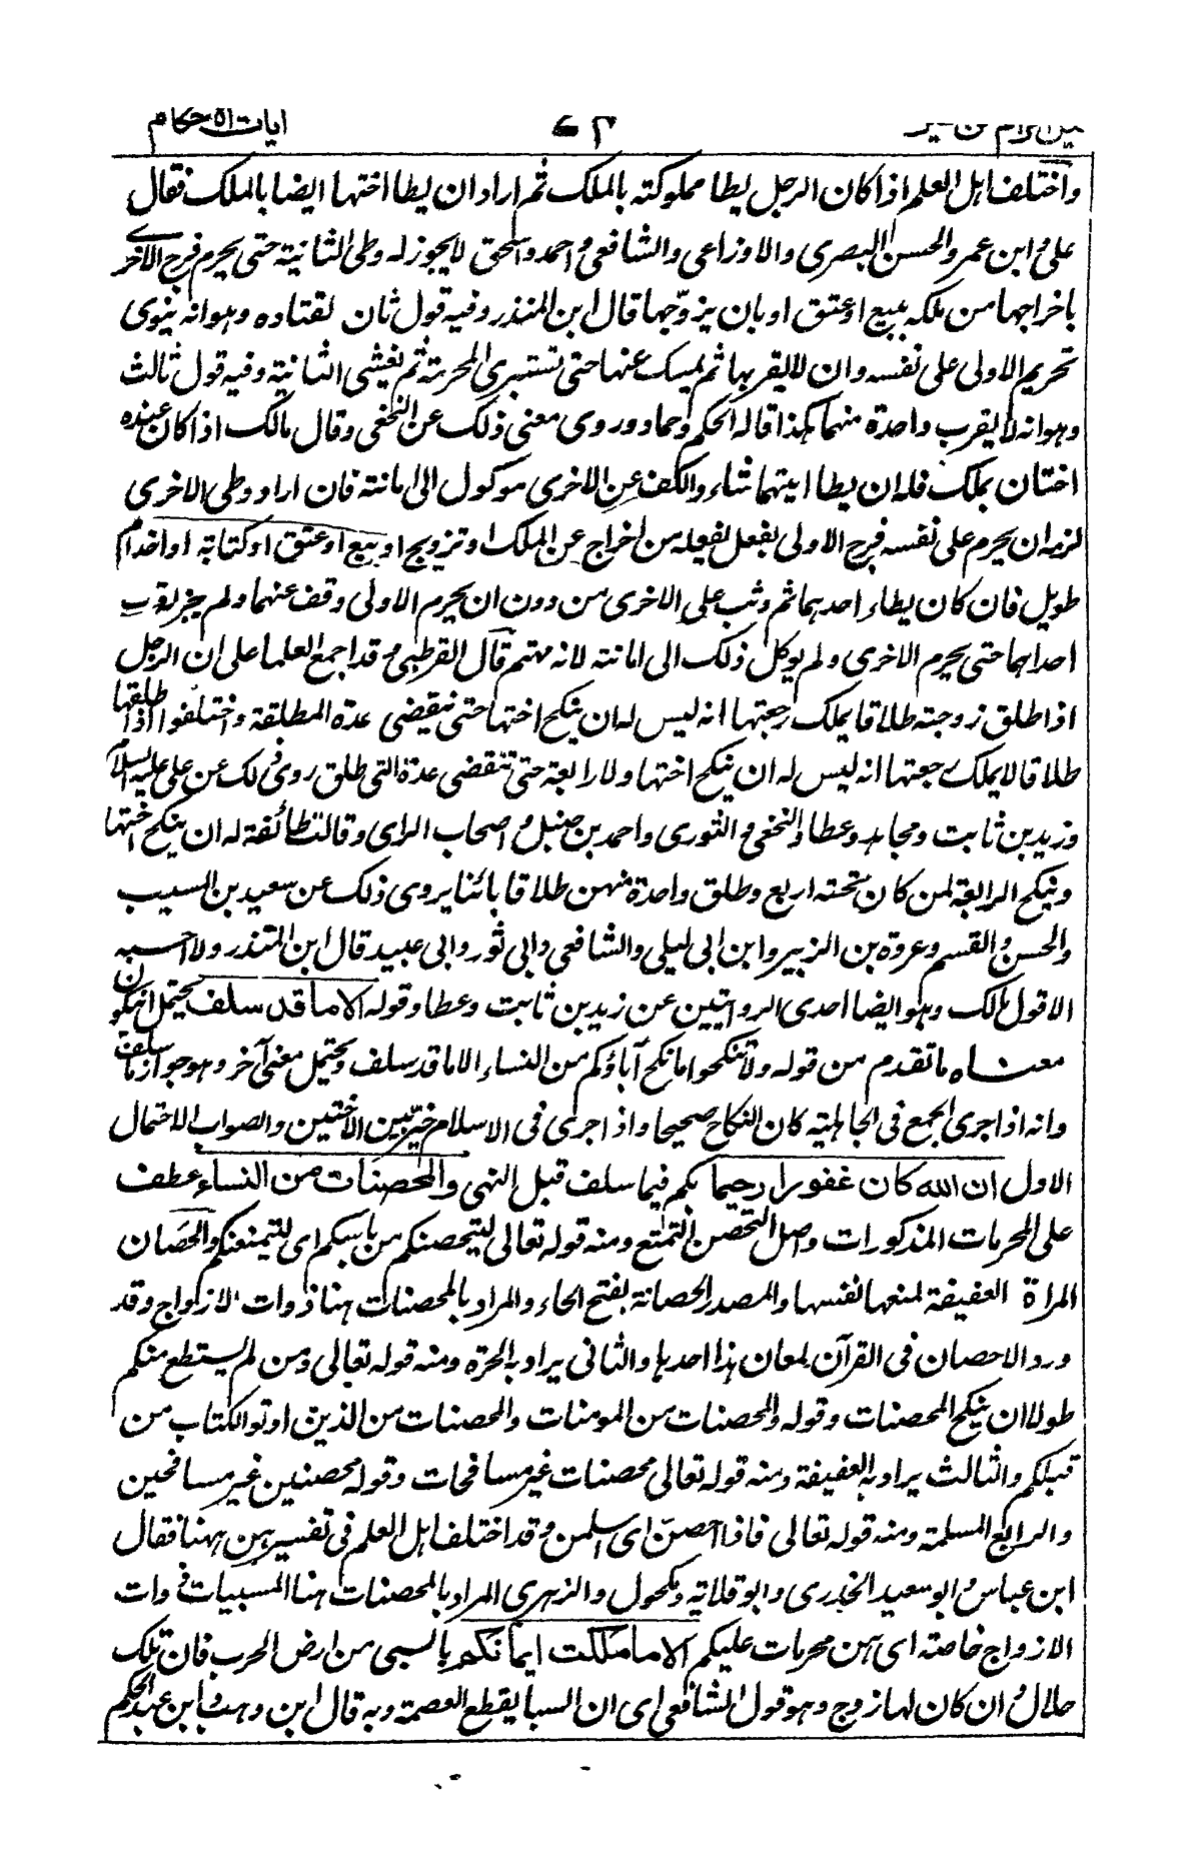 ايات الاحكام
واختلف اهل العلم اذا كان الرجل يطا مملوكته بالملك ثم اراد ان يطا اختها ايضا بالملك فقال
علي وابن عمر والحسن البصري والاوزاعي والشافعي واحمد واسحق لا يجوز له وطي الثانية حتى يحرم فرج الاخرى
باخراجها من ملكه ببيع او عتق او بان يزوّجها قال ابن المنذر وفيه قول ثان لقتاده وهو انه ينوى
تحريم الاولى على نفسه وان لا يقربها ثم يمسك عنها حتى تستبرى المحرمة ثم يغشى الثانية وفيه قول ثالث
وهو انه لا يقرب واحدة منهما هكذا قاله الحكم وحماد وروى معنى ذلك عن النخعي وقال مالك اذا كان عنده
اختان بملك فله ان يطا ايتهما شاء والكف عن الاخرى موكول الى امانته فان اراد وطي الاخرى
لزمه ان يحرم على نفسه فرج الاولى بفعل يفعله من اخراج عن الملك او تزويج او بيع او عتق او كتابة او اخدام
طويل فان كان يطاء احدهما ثم وثب على الاخرى من دون ان يحرم الاولى وقف عنهما ولم يجز له قرب
احداهما حتى يحرم الاخرى ولم يوكل ذلك الى امانته لانه متهم قال القرطبي وقد اجمع العلما على ان الرجل
اذا طلق زوجته طلاقا يملك رجعتها انه ليس له ان ينكح اختها حتى تنقضى عدة المطلقة واختلفوا اذا طلقها
طلاقا لا يملك رجعتها انه ليس له ان ينكح اختها ولا رابعة حتى تنقضى عدة التي طلق روى ذلك عن علي عليه السلام
وزيد بن ثابت ومجاهد وعطا والنخعي والثورى واحمد بن حنبل واصحاب الراى وقالت طائفة له ان ينكح اختها
وينكح الرابعة لمن كان تحته اربع وطلق واحدة منهن طلاقا بائنا يروى ذلك عن سعيد بن المسيب
والحسن والقسم وعروة بن الزبير وابن ابي ليلى والشافعي وابي ثور وابي عبيد قال ابن المنذر ولا احسبه
الا قول مالك وهو ايضا احدى الروايتين عن زيد بن ثابت وعطا وقوله الا ما قد سلف يحتمل ان يكون
معناه ما تقدم من قوله ولا تنكحوا ما نكح آباؤكم من النساء الا ما قد سلف ويحتمل معنى آخر وهو جواز ما سلف
وانه اذا جرى الجمع في الجاهلية كان النكاح صحيحا واذا جرى في الاسلام خيّر بين الاختين والصواب الاحتمال
الاول ان الله كان غفورا رحيما بكم فيما سلف قبل النهي والمحصنات من النساء عطف
على المحرمات المذكورات واصل التحصن التمتع ومنه قوله تعالى لتحصنكم من باسكم اى لتمنعنكم والحَصَان
المراة العفيفة لمنعها نفسها والمصدر الحصانة بفتح الحاء والمراد بالمحصنات هنا ذوات الازواج وقد
ورد الاحصان في القرآن لمعان هذا احدها والثاني يراد به الحرّة ومنه قوله تعالى ومن لم يستطع منكم
طولا ان ينكح المحصنات وقوله والمحصنات من المومنات والمحصنات من الذين اوتوا الكتاب من
قبلكم والثالث يراد به العفيفة ومنه قوله تعالى محصنات غير مسافحات وقوله محصنين غير مسافحين
والرابع المسلمة ومنه قوله تعالى فاذا احصنّ اى اسلمن وقد اختلف اهل العلم في تفسيرهن ههنا فقال
ابن عباس وابو سعيد الخدرى وابو قلابة ومكحول والزهرى المراد بالمحصنات هنا المسبيات ذوات
الازواج خاصة اى هن محرمات عليكم الا ما ملكت ايمانكم بالسبي من ارض الحرب فان تلك
حلال وان كان لها زوج وهو قول الشافعي اى ان السبا يقطع العصمة وبه قال ابن وهب وابن عبد الحكم